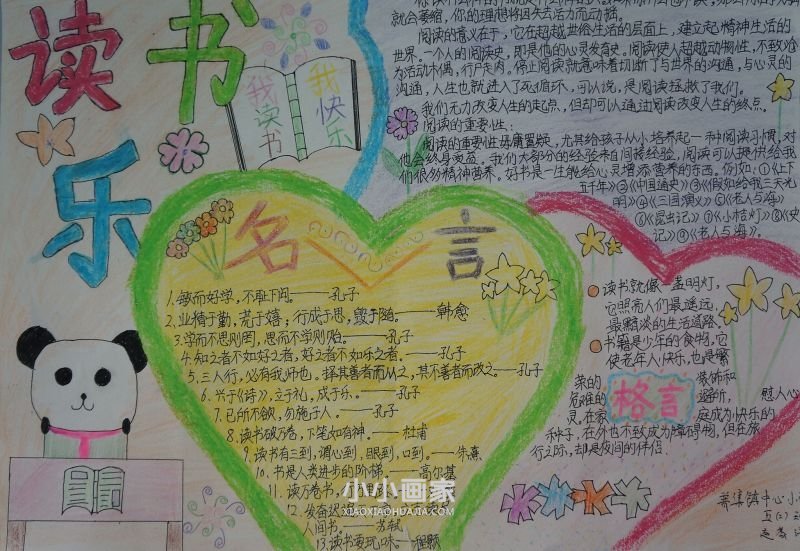 读书乐
我读书
我快乐
就会萎缩，你的理想将因失去活力而动摇。
阅读的意义在于，它在超越世俗生活的层面上，建立起精神生活的
世界。一个人的阅读史，即是他的心灵发育史。阅读使人超越动物性，不致沦
为活动木偶，行尸走肉。停止阅读就意味着切断了与世界的沟通，与心灵的
沟通，人生也就进入了死循环，可以说，是阅读拯救了我们。
我们无力改变人生的起点，但却可以通过阅读改变人生的终点。
阅读的重要性：
阅读的重要性毋庸置疑，尤其给孩子从小培养起一种阅读习惯，对
他会终身受益。我们大部分的经验来自间接经验，阅读可以提供给我
们很多精神营养。好书是一生能给心灵增添营养的东西。例如：①《上下
五千年》③《中国通史》③《假如给我三天光
明》④《三国演义》⑤《老人与海》
⑥《昆虫记》⑦《小桔灯》⑧《史
记》⑨《老人与海》。
名言
1.敏而好学，不耻下问。——孔子
2.业精于勤，荒于嬉；行成于思，毁于随。——韩愈
3.学而不思则罔，思而不学则殆。——孔子
4.知之者不如好之者，好之者不如乐之者。——孔子
5.三人行，必有我师也。择其善者而从之，其不善者而改之。——孔子
6.兴于《诗》，立于礼，成于乐。——孔子
7.己所不欲，勿施于人。——孔子
8.读书破万卷，下笔如有神。——杜甫
9.读书有三到，谓心到，眼到，口到。——朱熹
10.书是人类进步的阶梯。——高尔基
11.读万卷书，
12.发奋识
人间书。——苏轼
13.读书要玩味。——程颢
读书就像一盏明灯，
它照亮人们最遥远、
最黯淡的生活道路。
书籍是少年的食物，它
使老年人快乐，也是繁
荣的装饰和
危难的避所，慰人心
灵。在家庭成为快乐的
种子，在外也不致成为障碍物，但在旅
行之际，却是夜间的伴侣。
格言
集镇中心小
五(二)
小小画家
XIAOXIAOHUAJIA.COM